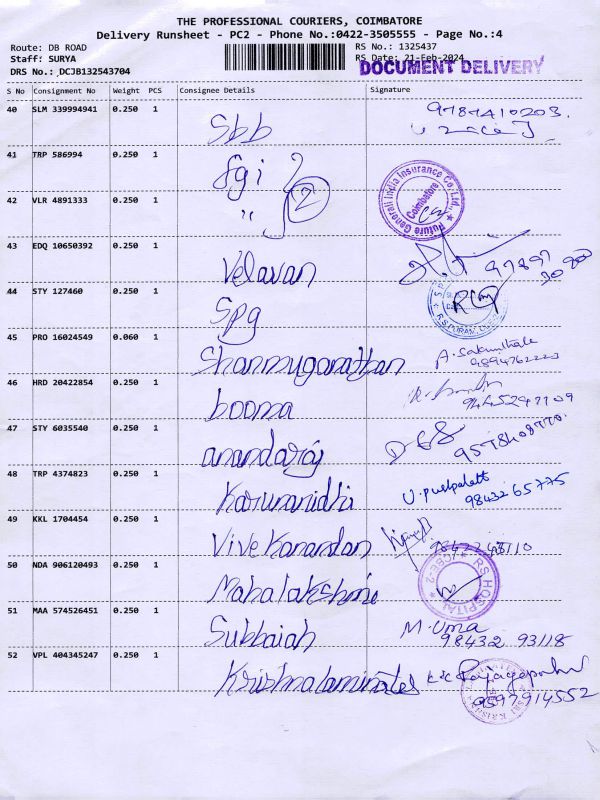 THE PROFESSIONAL COURIERS, COIMBATORE
Delivery Runsheet - PC2 - Phone No.:0422-3505555 - Page No.:4
Route: DB ROAD RS No.: 1325437
Staff: SURYA RS Date: 21-Feb-2024
DRS No.: DCJB132543704 DOCUMENT DELIVERY
S No Consignment No Weight PCS Consignee Details Signature
40 SLM 339994941 0.250 1 Sbb 9787410203.
41 TRP 586994 0.250 1 fgi Future Generali India Insurance Co.Ltd., Coimbatore
42 VLR 4891333 0.250 1 " 2
43 EDQ 10650392 0.250 1 Velavan
44 STY 127460 0.250 1 Spg R.S.PURAM
45 PRO 16024549 0.060 1 Shanmuganathan A. Sakunthala 9894762223
46 HRD 20422854 0.250 1 booma
47 STY 6035540 0.250 1 anandaraj
48 TRP 4374823 0.250 1 Karunanidhi U. pushpalatt 98432 65775
49 KKL 1704454 0.250 1 Vivekanandan
50 NDA 906120493 0.250 1 Mahalakshmi RS HOSPITAL CBE-2
51 MAA 574526451 0.250 1 Subbaiah M. Uma 98432 93118
52 VPL 404345247 0.250 1 Krishna laminates Rajagopal 9597914552